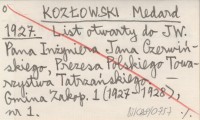 KOZŁOWSKI Medard
1927. List otwarty do JW.
Pana Inżyniera Jana Czerwiń-
skiego, Prezesa Polskiego Towa-
rzystwa Tatrzańskiego. —
Gmina Zakop. 1 (1927-1928),
nr 1.